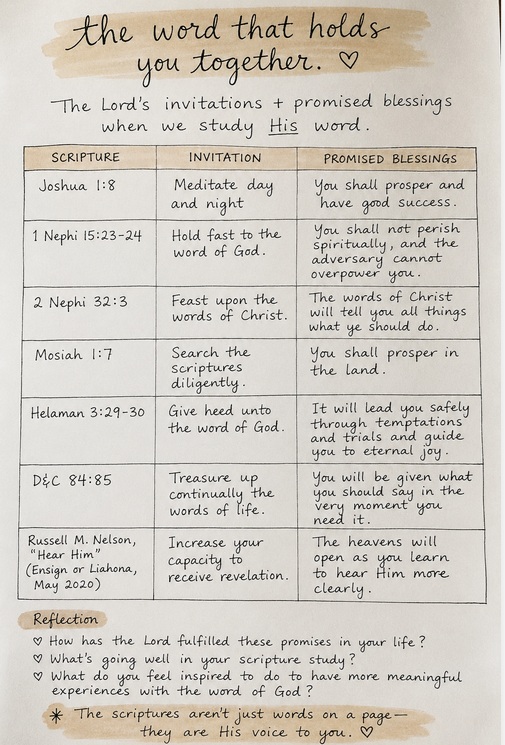 the word that holds
you together. ♡
The Lord's invitations + promised blessings
when we study His word.
SCRIPTURE INVITATION PROMISED BLESSINGS
Joshua 1:8
Meditate day
and night
You shall prosper and
have good success.
1 Nephi 15:23-24
Hold fast to the
word of God.
You shall not perish
spiritually, and the
adversary cannot
overpower you.
2 Nephi 32:3
Feast upon the
words of Christ.
The words of Christ
will tell you all things
what ye should do.
Mosiah 1:7
Search the
scriptures
diligently.
You shall prosper in
the land.
Helaman 3:29-30
Give heed unto
the word of God.
It will lead you safely
through temptations
and trials and guide
you to eternal joy.
D&C 84:85
Treasure up
continually the
words of life.
You will be given what
you should say in the
very moment you
need it.
Russell M. Nelson,
"Hear Him"
(Ensign or Liahona,
May 2020)
Increase your
capacity to
receive revelation.
The heavens will
open as you learn
to hear Him more
clearly.
Reflection
♡ How has the Lord fulfilled these promises in your life?
♡ What's going well in your scripture study?
♡ What do you feel inspired to do to have more meaningful
experiences with the word of God?
* The scriptures aren't just words on a page—
they are His voice to you. ♡